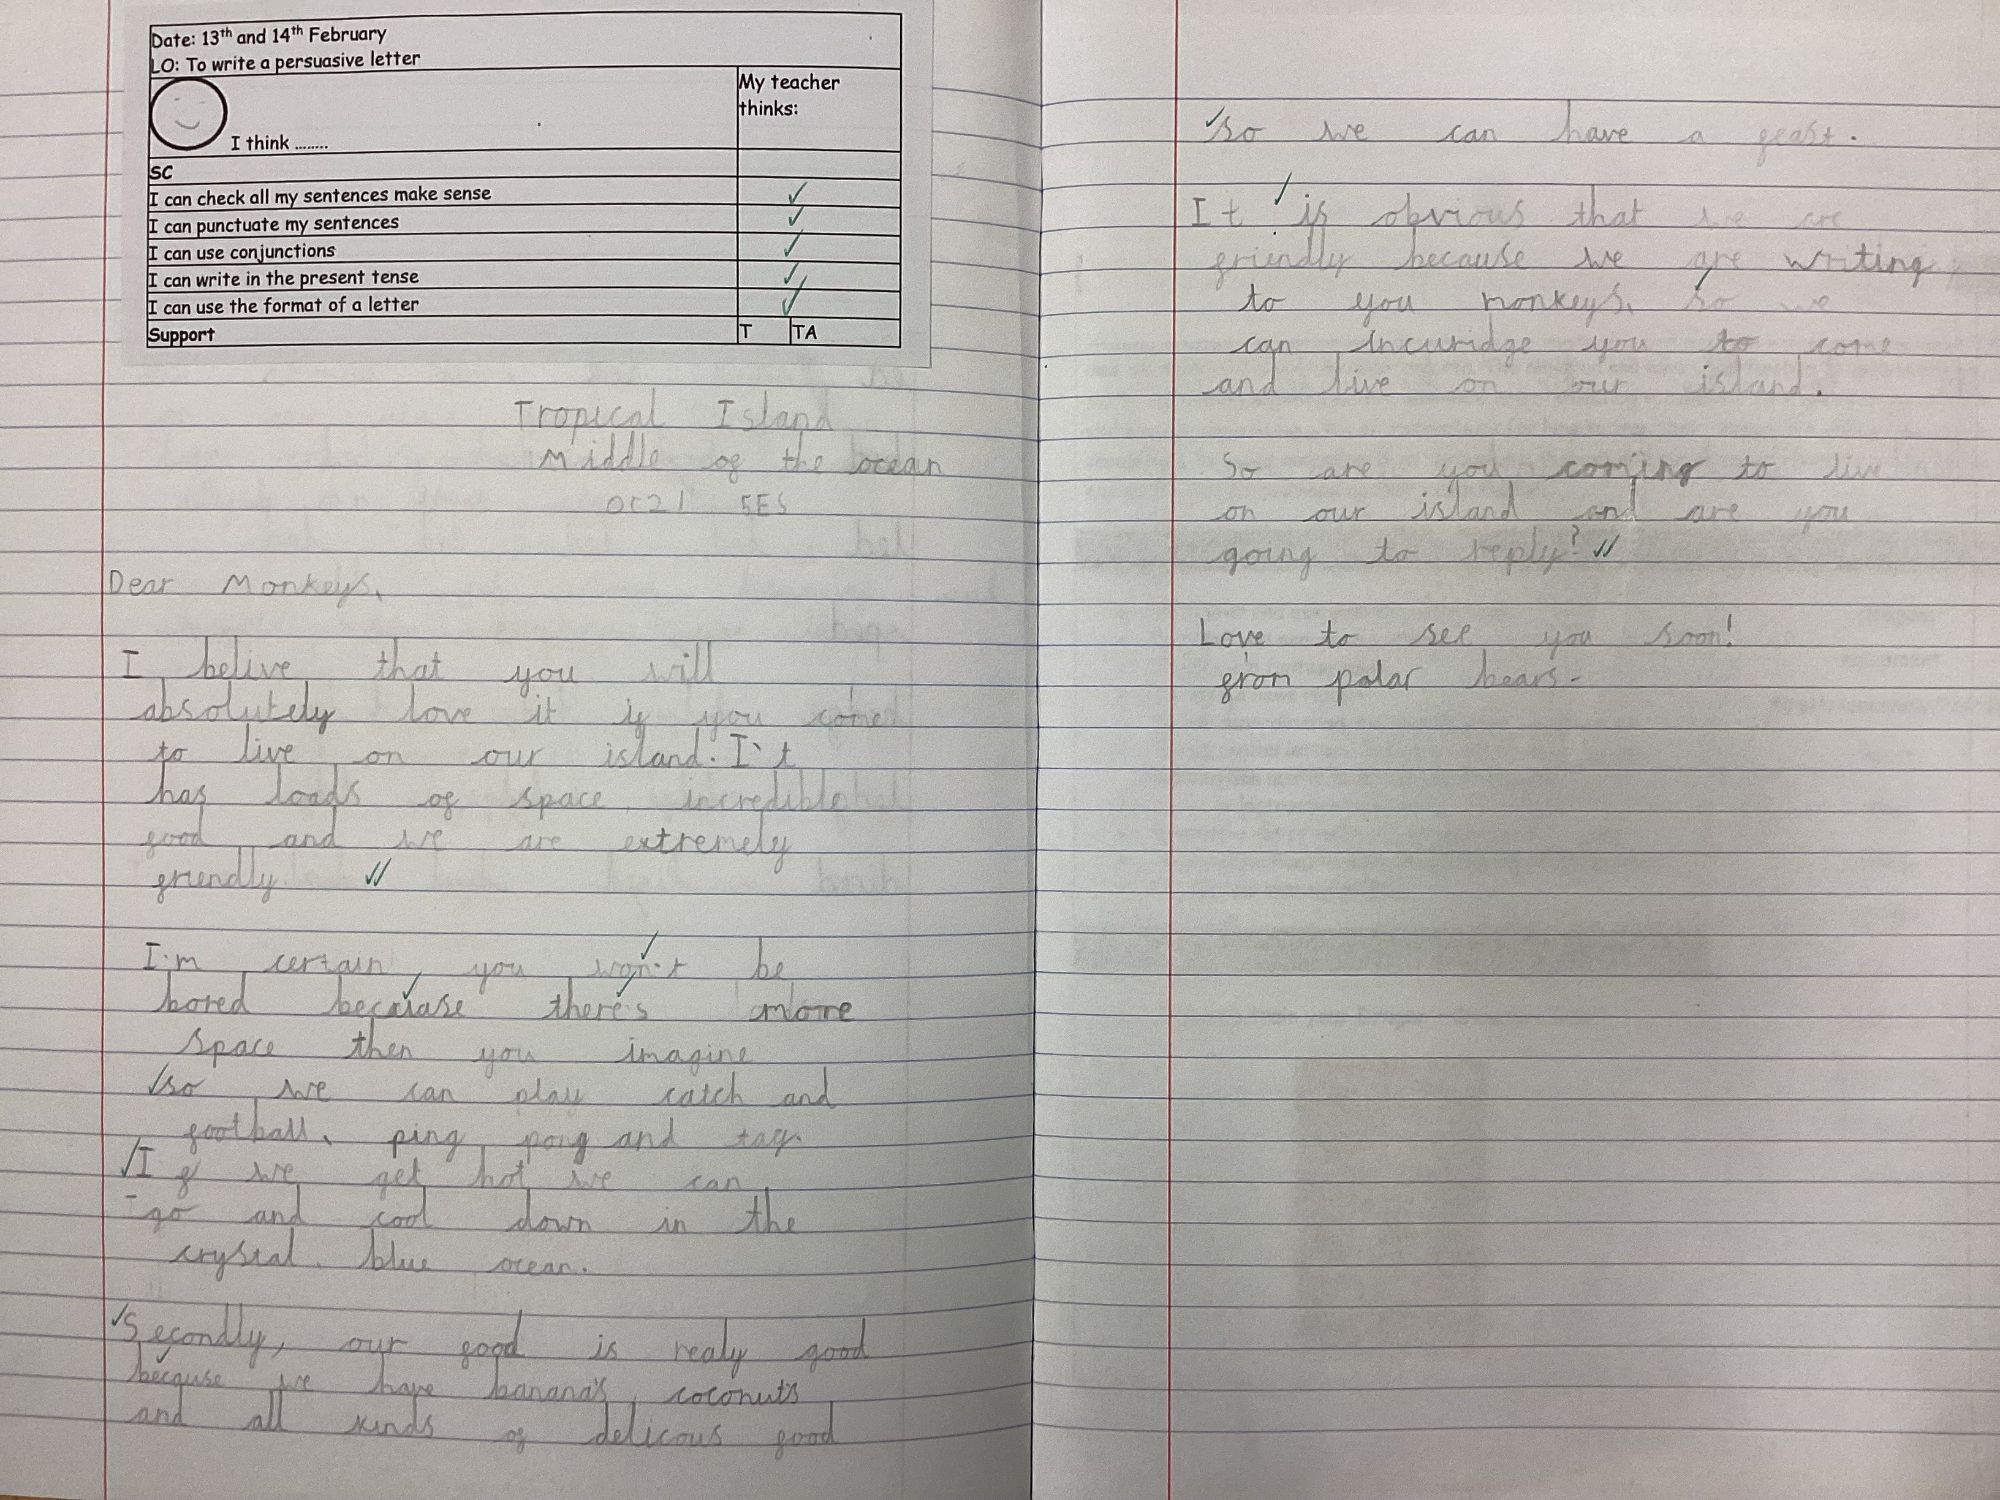 Date: 13th and 14th February
LO: To write a persuasive letter
My teacher thinks:
I think ........
SC
I can check all my sentences make sense
I can punctuate my sentences
I can use conjunctions
I can write in the present tense
I can use the format of a letter
Support T TA
Tropical Island
Middle of the ocean
OC21 5ES
Dear Monkeys,
I belive that you will
absolutely love it if you come
to live on our island. I't
has loads of space, incredible
food and we are extremely
friendly.
I'm certain, you won't be
bored because there's more
space then you imagine
so we can play catch and
football, ping pong and tag.
If we get hot we can
go and cool down in the
crystal, blue ocean.
Secondly, our food is realy good
because we have banana's, coconuts
and all kinds of delicous food
so we can have a feast.
It is obvious that we are
friendly because we are writing
to you monkeys, so we
can incuridge you to come
and live on our island.
So are you coming to live
on our island and are you
going to reply?
Love to see you soon!
from polar bears.